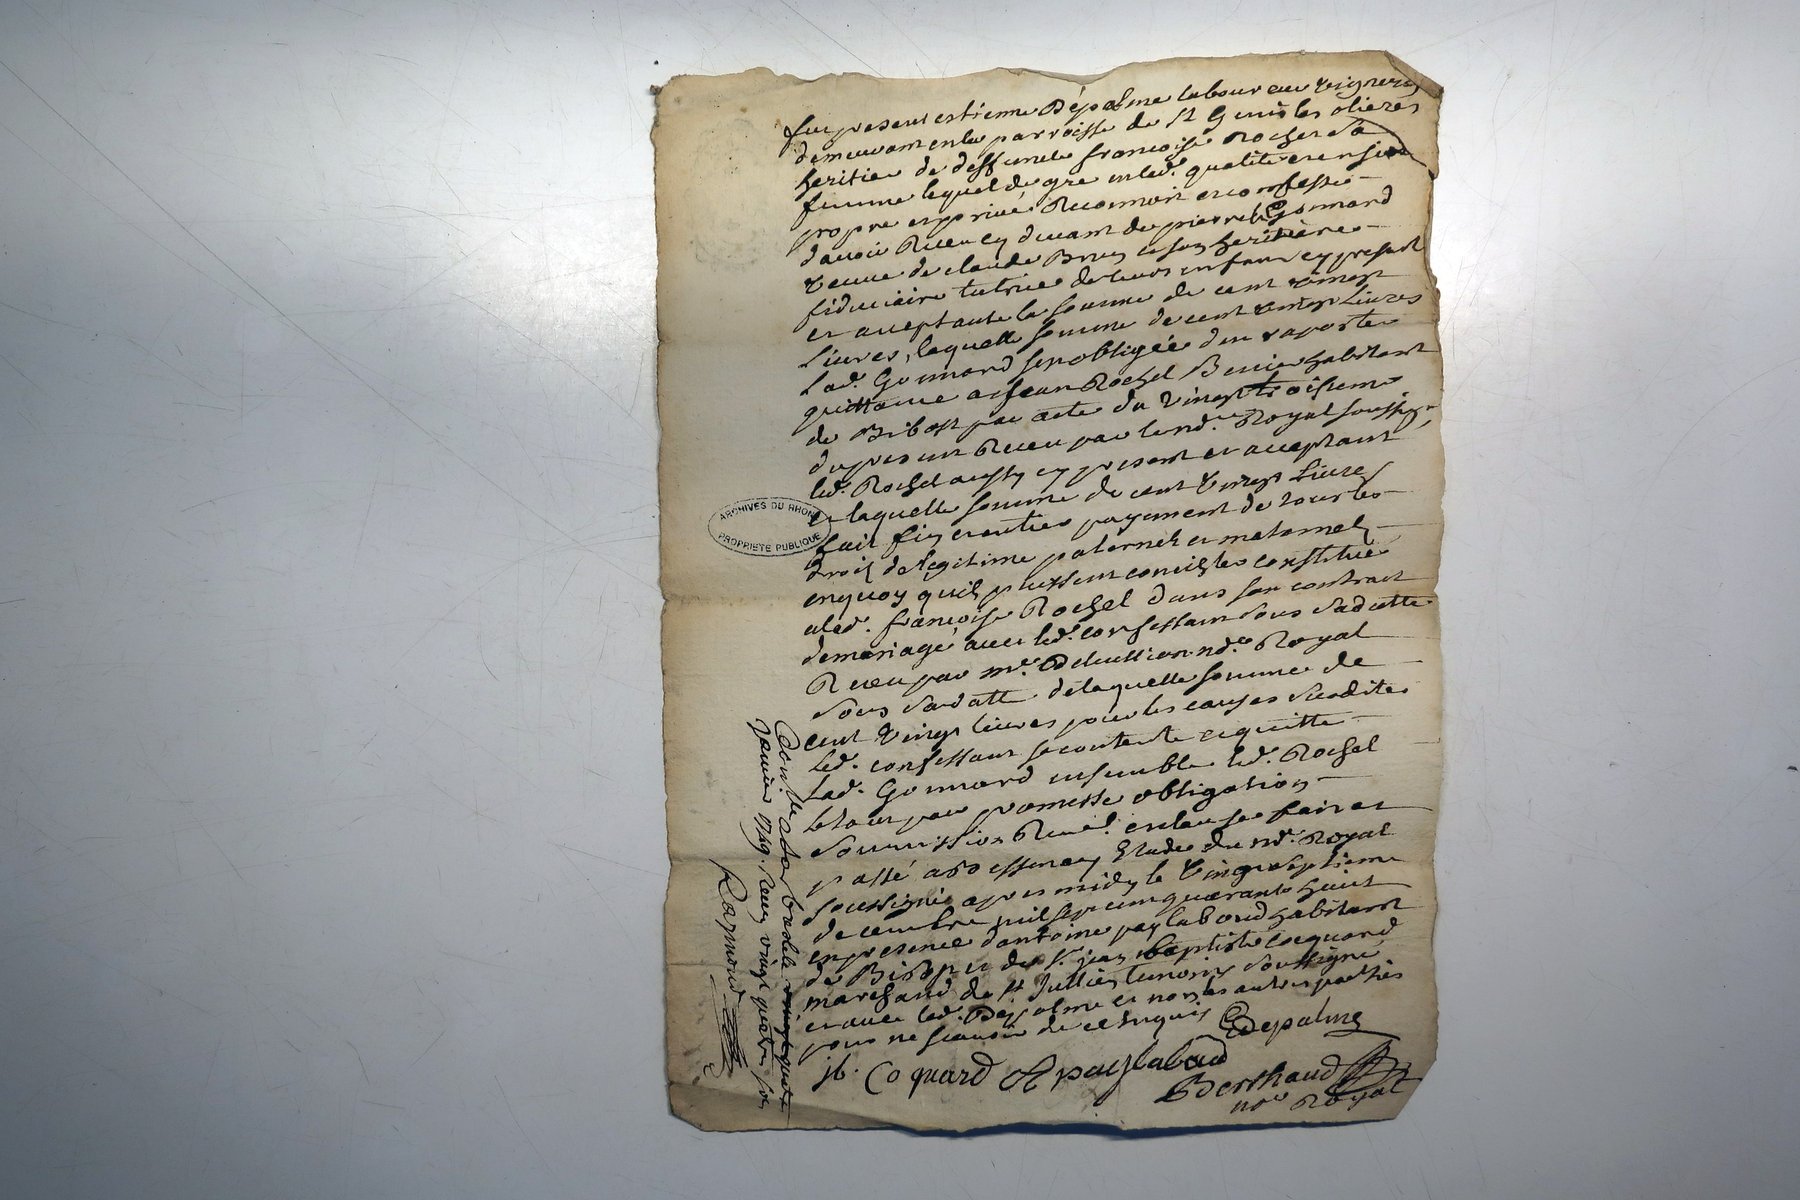 fut present estienne Depalme laboureur vigneron
demeurant en la parroisse de St Genis les olieres
heritier de deffunte francoise Rochel sa
femme lequel de gré en lad. qualité et en son
propre et privé Reconnoit et confesse
d'avoir Receu cy devant de pierrette Gonnard
veuve de claude Brun et son heritiere
fiduciaire tutrice de leurs enfans cy presente
et acceptante la somme de cent vingt
Livres, laquelle somme de cent vingt Livres
Lad. Gonnard s'est obligée d'en raporter
quittance a Jean Rochel habitant
de Bibost par acte du vingt troisieme
du present Receu par le nore. Royal soussigné,
led. Rochel aussy cy present et acceptant
et laquelle somme de cent vingt Livres
fait fin et entier payement de tous les
droits de legitime paternels et maternels
en quoy qu'ils puissent consister constitués
a lad. françoise Rochel dans son contract
de mariage avec led. confessant sous sa datte
Receu par me. nore. Royal
sous sa datte de laquelle somme de
cent vingt livres pour les causes susdites
led. confessant se contente et quitte
Lad. Gonnard ensemble led. Rochel
le tout par promesse obligation
soumission Renon. et clauses fait et
passé a Bessenay Etude du nore. Royal
soussigné apres midy le vingt septieme
decembre mil sept cent quarante huit
en presence d'antoine paylaboud habitant
de Bibost et de sr. jean baptiste coquard
marchand de St Jullien temoins soussignés
et avec led. Depalme et non les autres parties
pour ne sçavoir de ce enquis
E Depalme
jb. Coquard A paylaboud
Berthaud
nore Royal
Conlle a la brasle
janvier 1749. Receu vingt quatre sols
Raymond
ARCHIVES DU RHONE
PROPRIETE PUBLIQUE